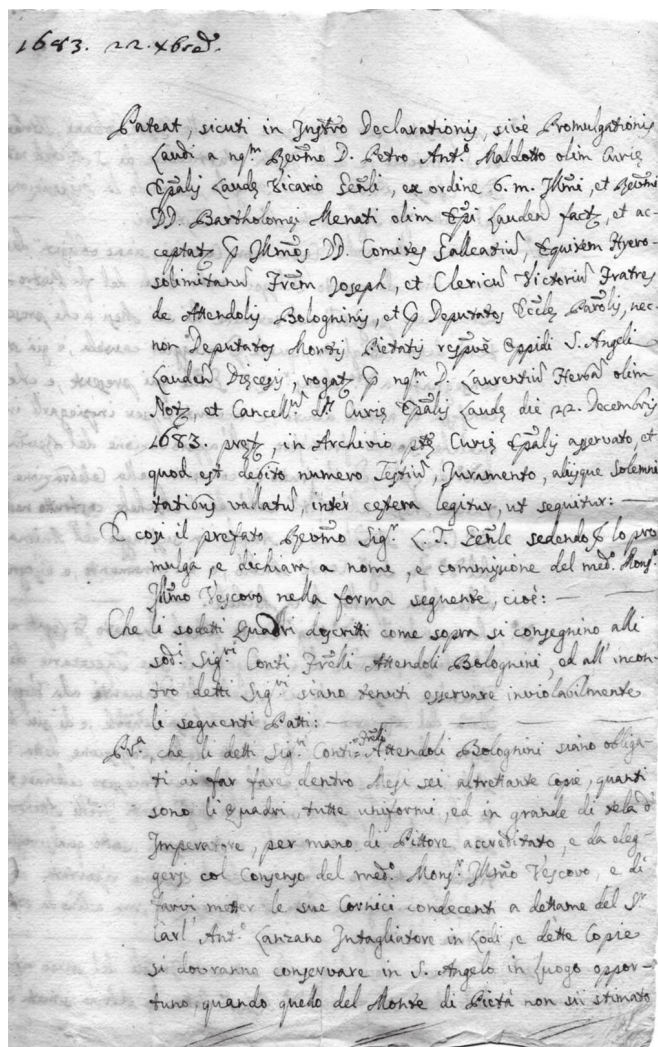 1683. 22. Xbre.
Pateat, sicuti in Instro Declarationis, sivè Promulgationis
Laudi a nunqm Revmo D. Petro Anto. Maldotto olim Curię
Epalis Laudę Vicario Genli, ex ordine b. m. Illmi, et Revmi
DD. Bartholomei Menati olim Epi Lauden fact, et ac-
ceptat p Illmos DD. Comites Galleatiu, Equitem Hyero-
solimitanu Frem Joseph, et Clericu Victoriu Fratres
de Attendolis Bologninis, et p Deputatos Ecclę Parolis, nec-
non Deputatos Montis Pietatis respvè Oppidi S. Angeli
Lauden Dięcesis, rogat p D. Laurentiu olim
Not, et Cancell. Curię Epalis Laudę die 22. Decembris
1683. pret, in Archivio Curię Epalis asservato, et
quod est debito numero Testiu, Juramento, aliisque Solemni
tationis vallatu, inter cetera legitur, ut sequitur: —
E così il prefato Revmo Sigr. Genle sedendo p lo pro
mulga, e dichiara a nome, e commissione del medo. Monsr.
Illmo Vescovo nella forma seguente, cioè: —
Che li sodetti Quadri descritti come sopra si consegnino alli
sodi. Sigri Conti Frelli Attendoli Bolognini, ed all' incon-
tro detti Sigri siano tenuti osservare inviolabilmente
li seguenti Patti: —
Pra., che li detti Sigri Conti Frelli Attendoli Bolognini siano obliga-
ti di far fare dentro Mesi sei altretante Copie, quanti
sono li Quadri, tutte uniformi, ed in grande di tela d'
Imperatore, per mano di Pittore accreditato, e da eleg-
gersi col Consenso del medo. Monsr. Illmo Vescovo, e di
farvi metter le sue Cornici condecenti a dettame del Sr.
Carl' Anto. Lanzano Intagliatore in Lodi, e dette Copie
si dovranno conservare in S. Angelo in luogo oppor-
tuno, quando quello del Monte di Pietà non sii stimato